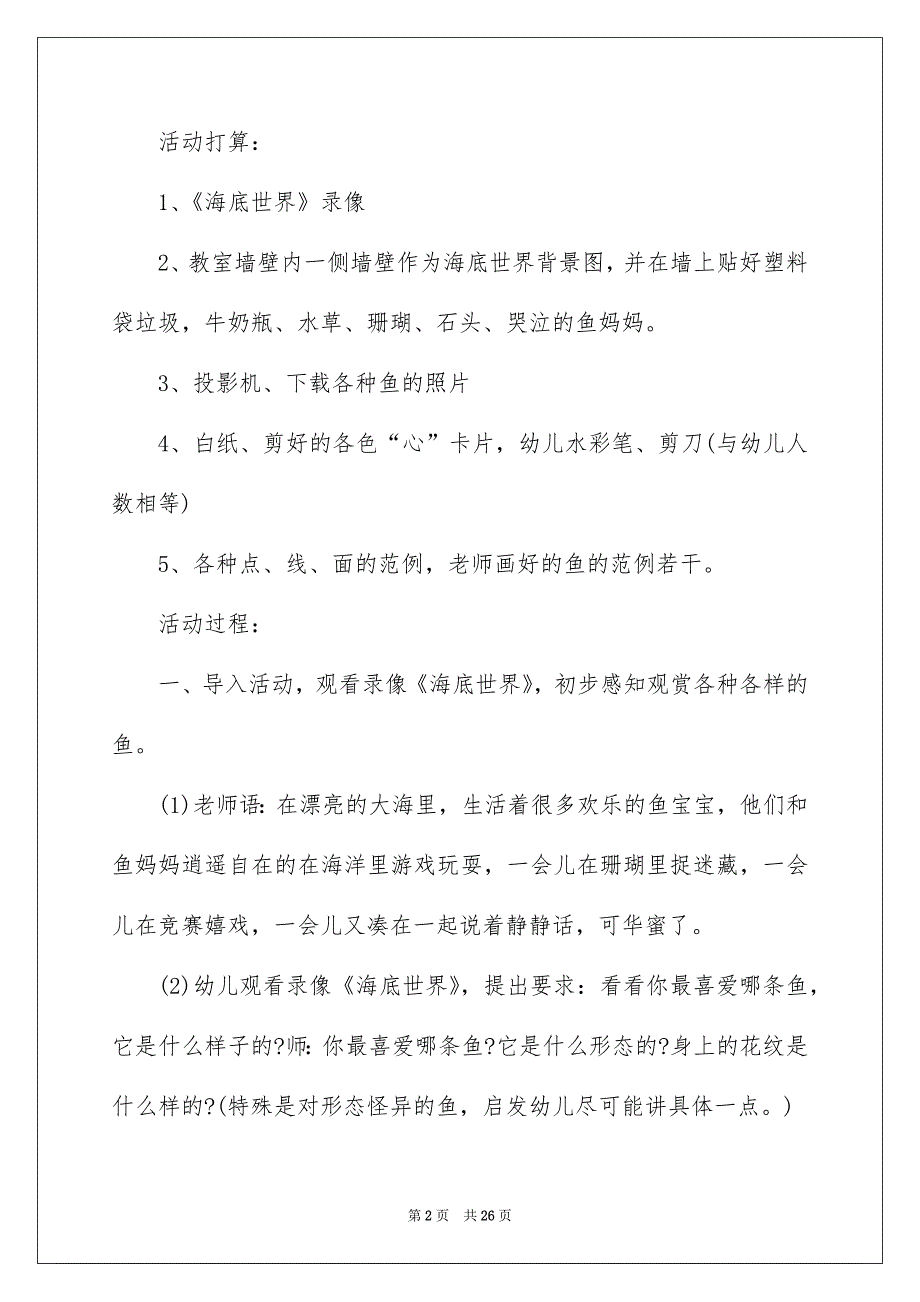 活动打算：
1、《海底世界》录像
2、教室墙壁内一侧墙壁作为海底世界背景图，并在墙上贴好塑料
袋垃圾，牛奶瓶、水草、珊瑚、石头、哭泣的鱼妈妈。
3、投影机、下载各种鱼的照片
4、白纸、剪好的各色“心”卡片，幼儿水彩笔、剪刀(与幼儿人
数相等)
5、各种点、线、面的范例，老师画好的鱼的范例若干。
活动过程：
一、导入活动，观看录像《海底世界》，初步感知观赏各种各样的
鱼。
(1)老师语：在漂亮的大海里，生活着很多欢乐的鱼宝宝，他们和
鱼妈妈逍遥自在的在海洋里游戏玩耍，一会儿在珊瑚里捉迷藏，一会
儿在竞赛嬉戏，一会儿又凑在一起说着静静话，可华蜜了。
(2)幼儿观看录像《海底世界》，提出要求：看看你最喜爱哪条鱼，
它是什么样子的?师：你最喜爱哪条鱼?它是什么形态的?身上的花纹是
什么样的?(特殊是对形态怪异的鱼，启发幼儿尽可能讲具体一点。)
第 2 页 共 26 页